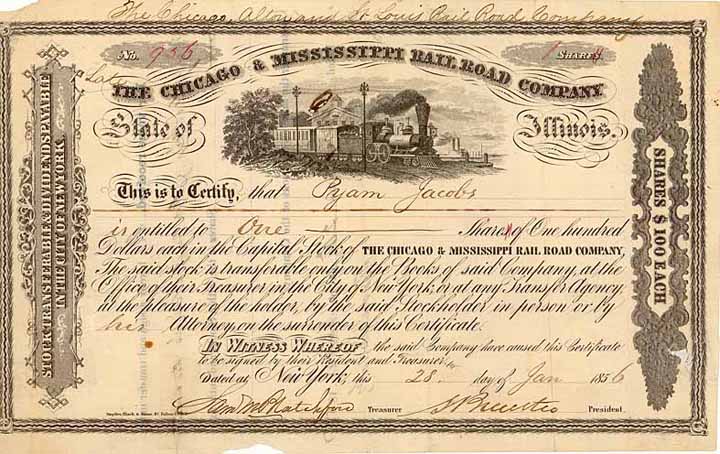 The Chicago, Alton and St Louis Rail Road Company
No. 956
1 SHARES
Late
THE CHICAGO & MISSISSIPPI RAIL ROAD COMPANY
State of Illinois.
This is to Certify, that Pyam Jacobs
is entitled to One Shares of One hundred
Dollars each in the Capital Stock of THE CHICAGO & MISSISSIPPI RAIL ROAD COMPANY.
The said stock is transferable only on the Books of said Company, at the
Office of their Treasurer in the City of New York, or at any Transfer Agency
at the pleasure of the holder, by the said Stockholder in person or by
his Attorney, on the surrender of this Certificate.
IN WITNESS WHEREOF the said Company have caused this Certificate
to be signed by their President and Treasurer.
Dated at New York, this 28 day of Jan 1856
Treasurer
President.
STOCK TRANSFERABLE & DIVIDENDS PAYABLE
IN THE CITY OF NEW YORK.
SHARES $100 EACH